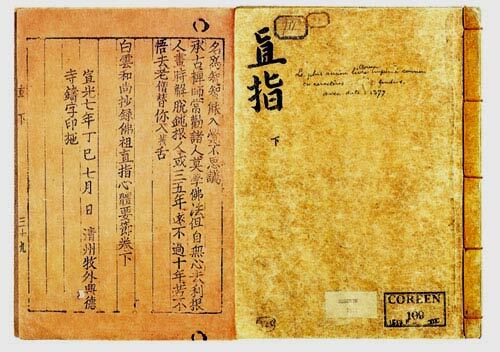 名
不思議
承古禪師常勸諸人莫學佛法但自無心去利根
人晝時解脫鈍根人或三五年遠不過十年若不
悟去老僧替你入舌
白雲和尙抄錄佛祖直指心體要節卷下
宣光七年丁巳七月 日 淸州牧外興德
寺鑄字印施
直 下
三十九
直指
下
Le plus ancien livre coréen imprimé connu
en caractères fondus,
avec date = 1377
COREEN
109